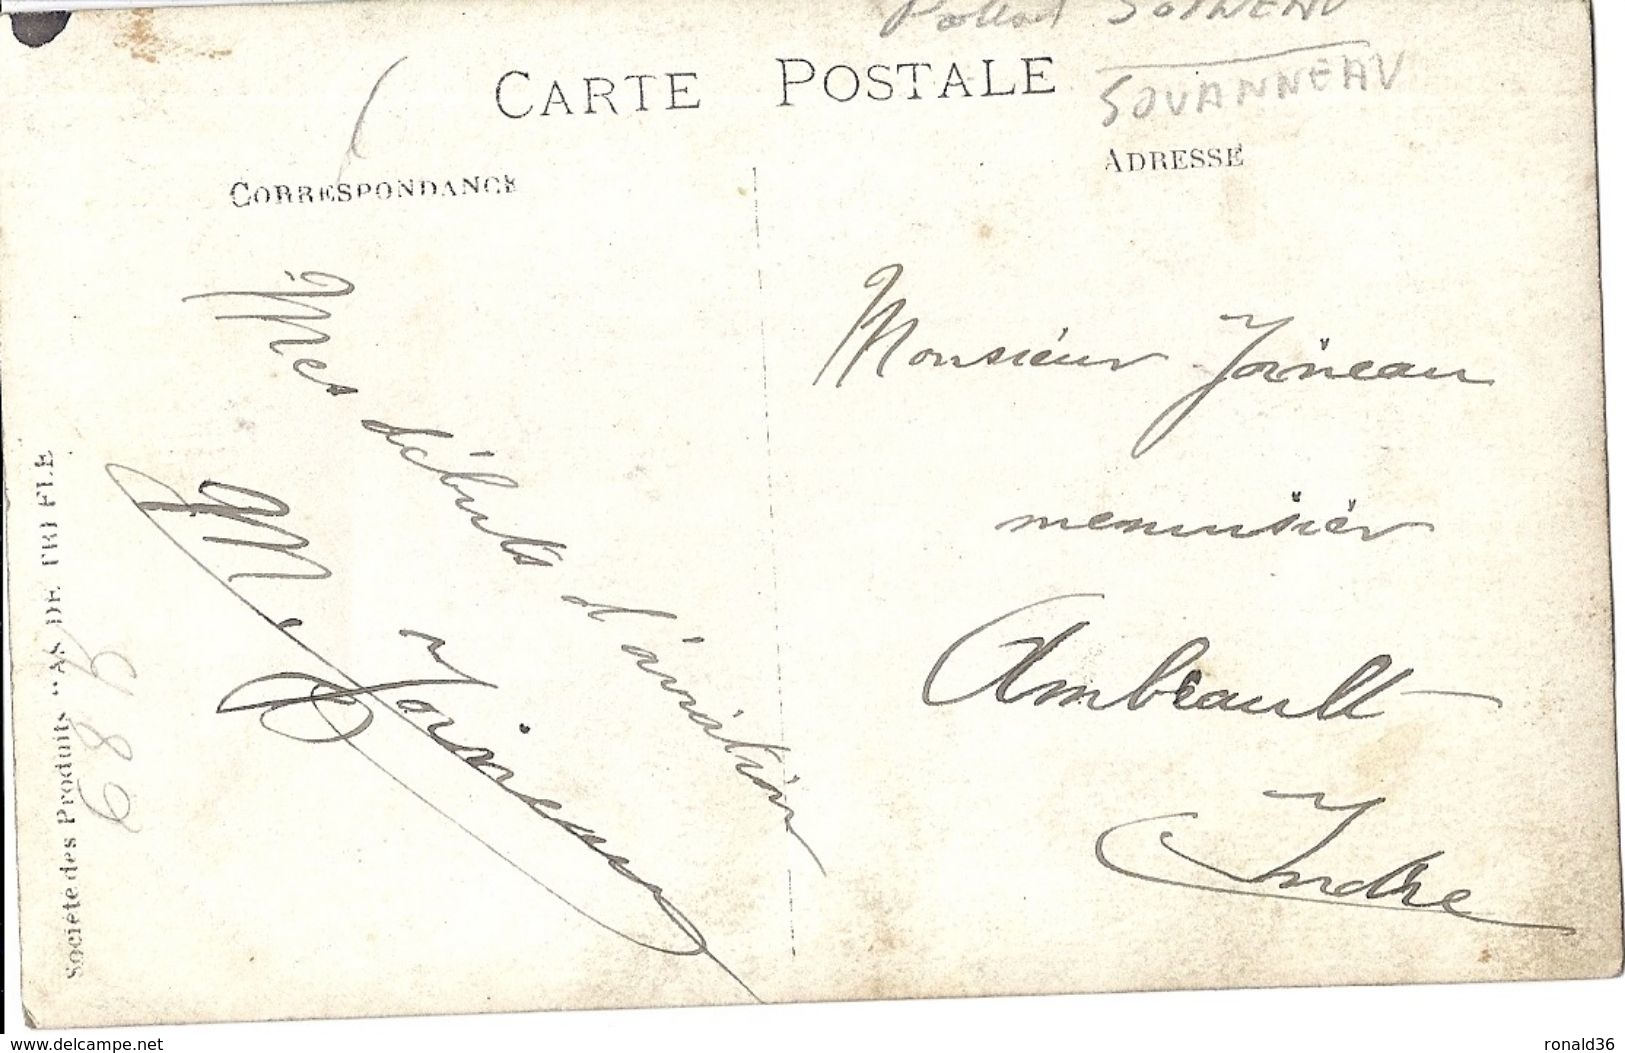 SOUANNEAU
CARTE POSTALE
CORRESPONDANCE
ADRESSE
Mes débuts d'aviation
M. Joineau
Monsieur Joineau
menuisier
Ambrault
Indre
Société des Produits "AS DE TREFLE
989
www.delcampe.net
ronald36